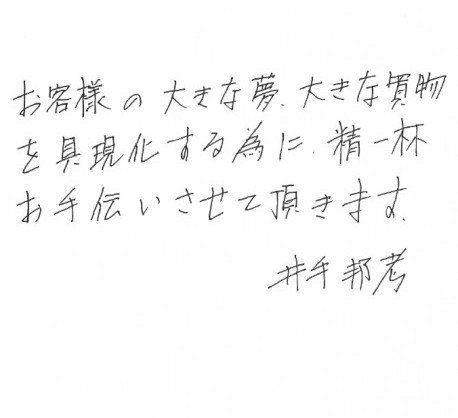 お客様の大きな夢、大きな買物
を具現化する為に、精一杯
お手伝いさせて頂きます。
井手邦孝